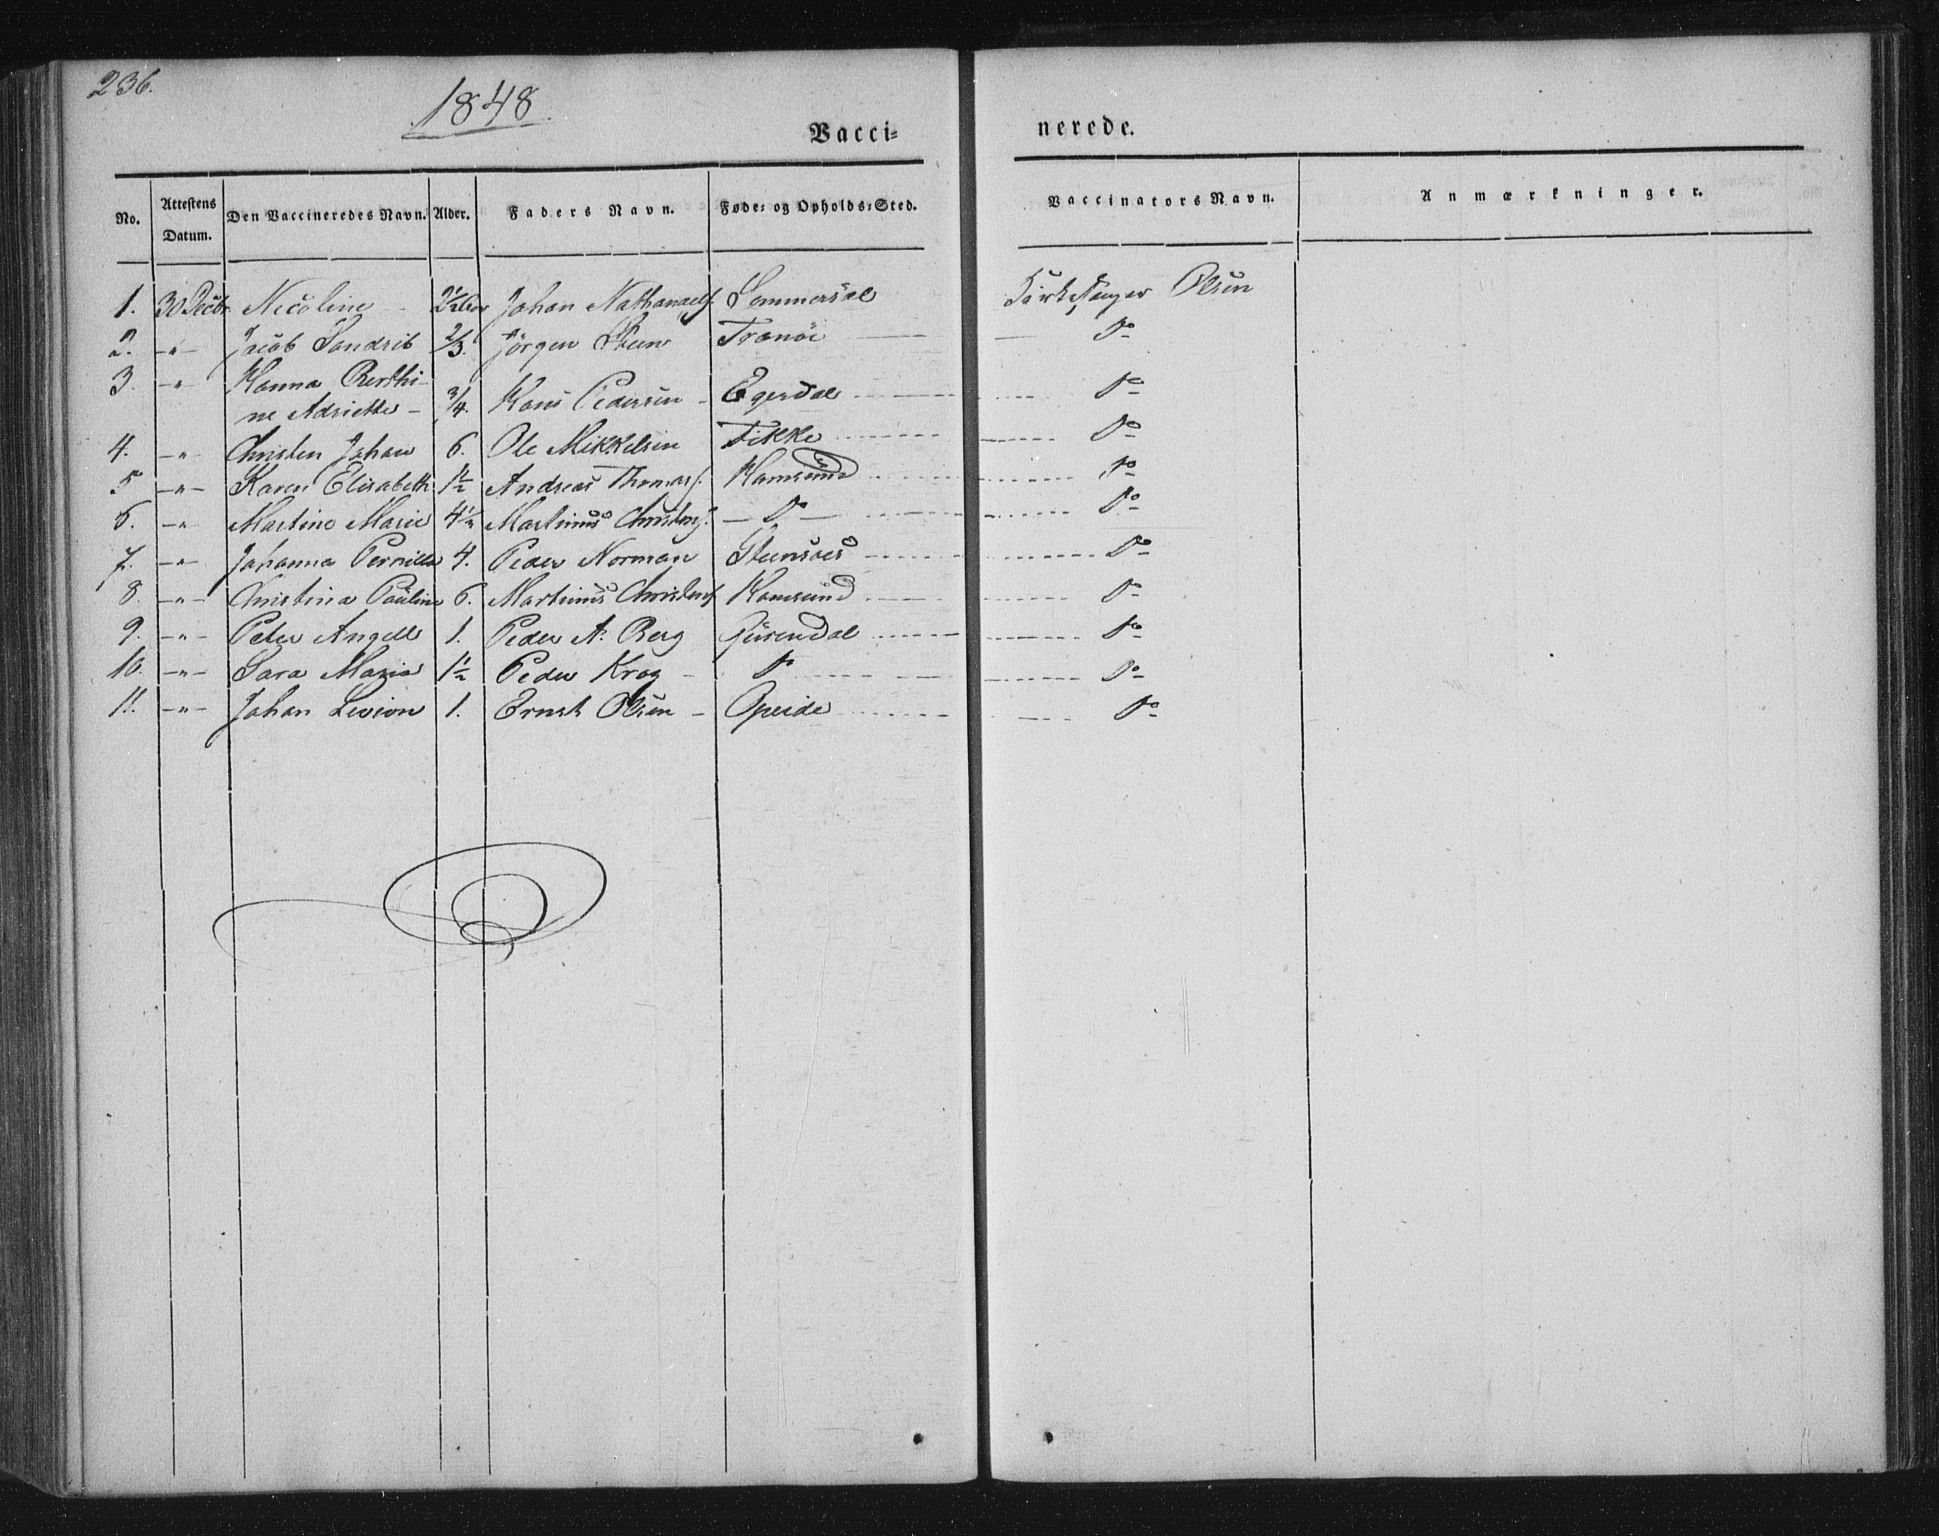 236.
1848
Vacci=
nerede.
No. Attestens Datum. Den Vaccineredes Navn. Alder. Faders Navn. Føde= og Opholds=Sted. Vaccinators Navn. Anmærkninger.
1. 30 Decbr Nicoline - 2½ Aar Johan Nathanaels. Sommersæl Kirkesanger Olsen
2. -"- Jacob 2/3. Jörgen Steen Tranöe Do
3. -" Hanna Berthi-
ne Adriette - 3/4. Hans Pedersen - Egerdal Do
4. -"- Christen Johan 6. Ole Mikkelsen Fikke Do
5 -"- Karen Elisabeth 1½ Andreas Thomas. Hamsund Do
6. -"- Martine Marie 4½ Martinus Christens. - Do - Do
7. -"- Johanna Pernilla 4. Peder Norman Steensoes Do
8. -"- Christina Pauline 6. Martinus Christens Hamsund Do
9. -"- Peter Angell 1. Peder A. Berg Füren Do
10. -"- Sara Maria 1½ Peder Krog - Do Do
11. -"- Johan 1. Ernst Olsen - Opeide Do